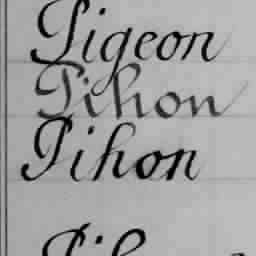 Pigeon
Pihon
Pihon